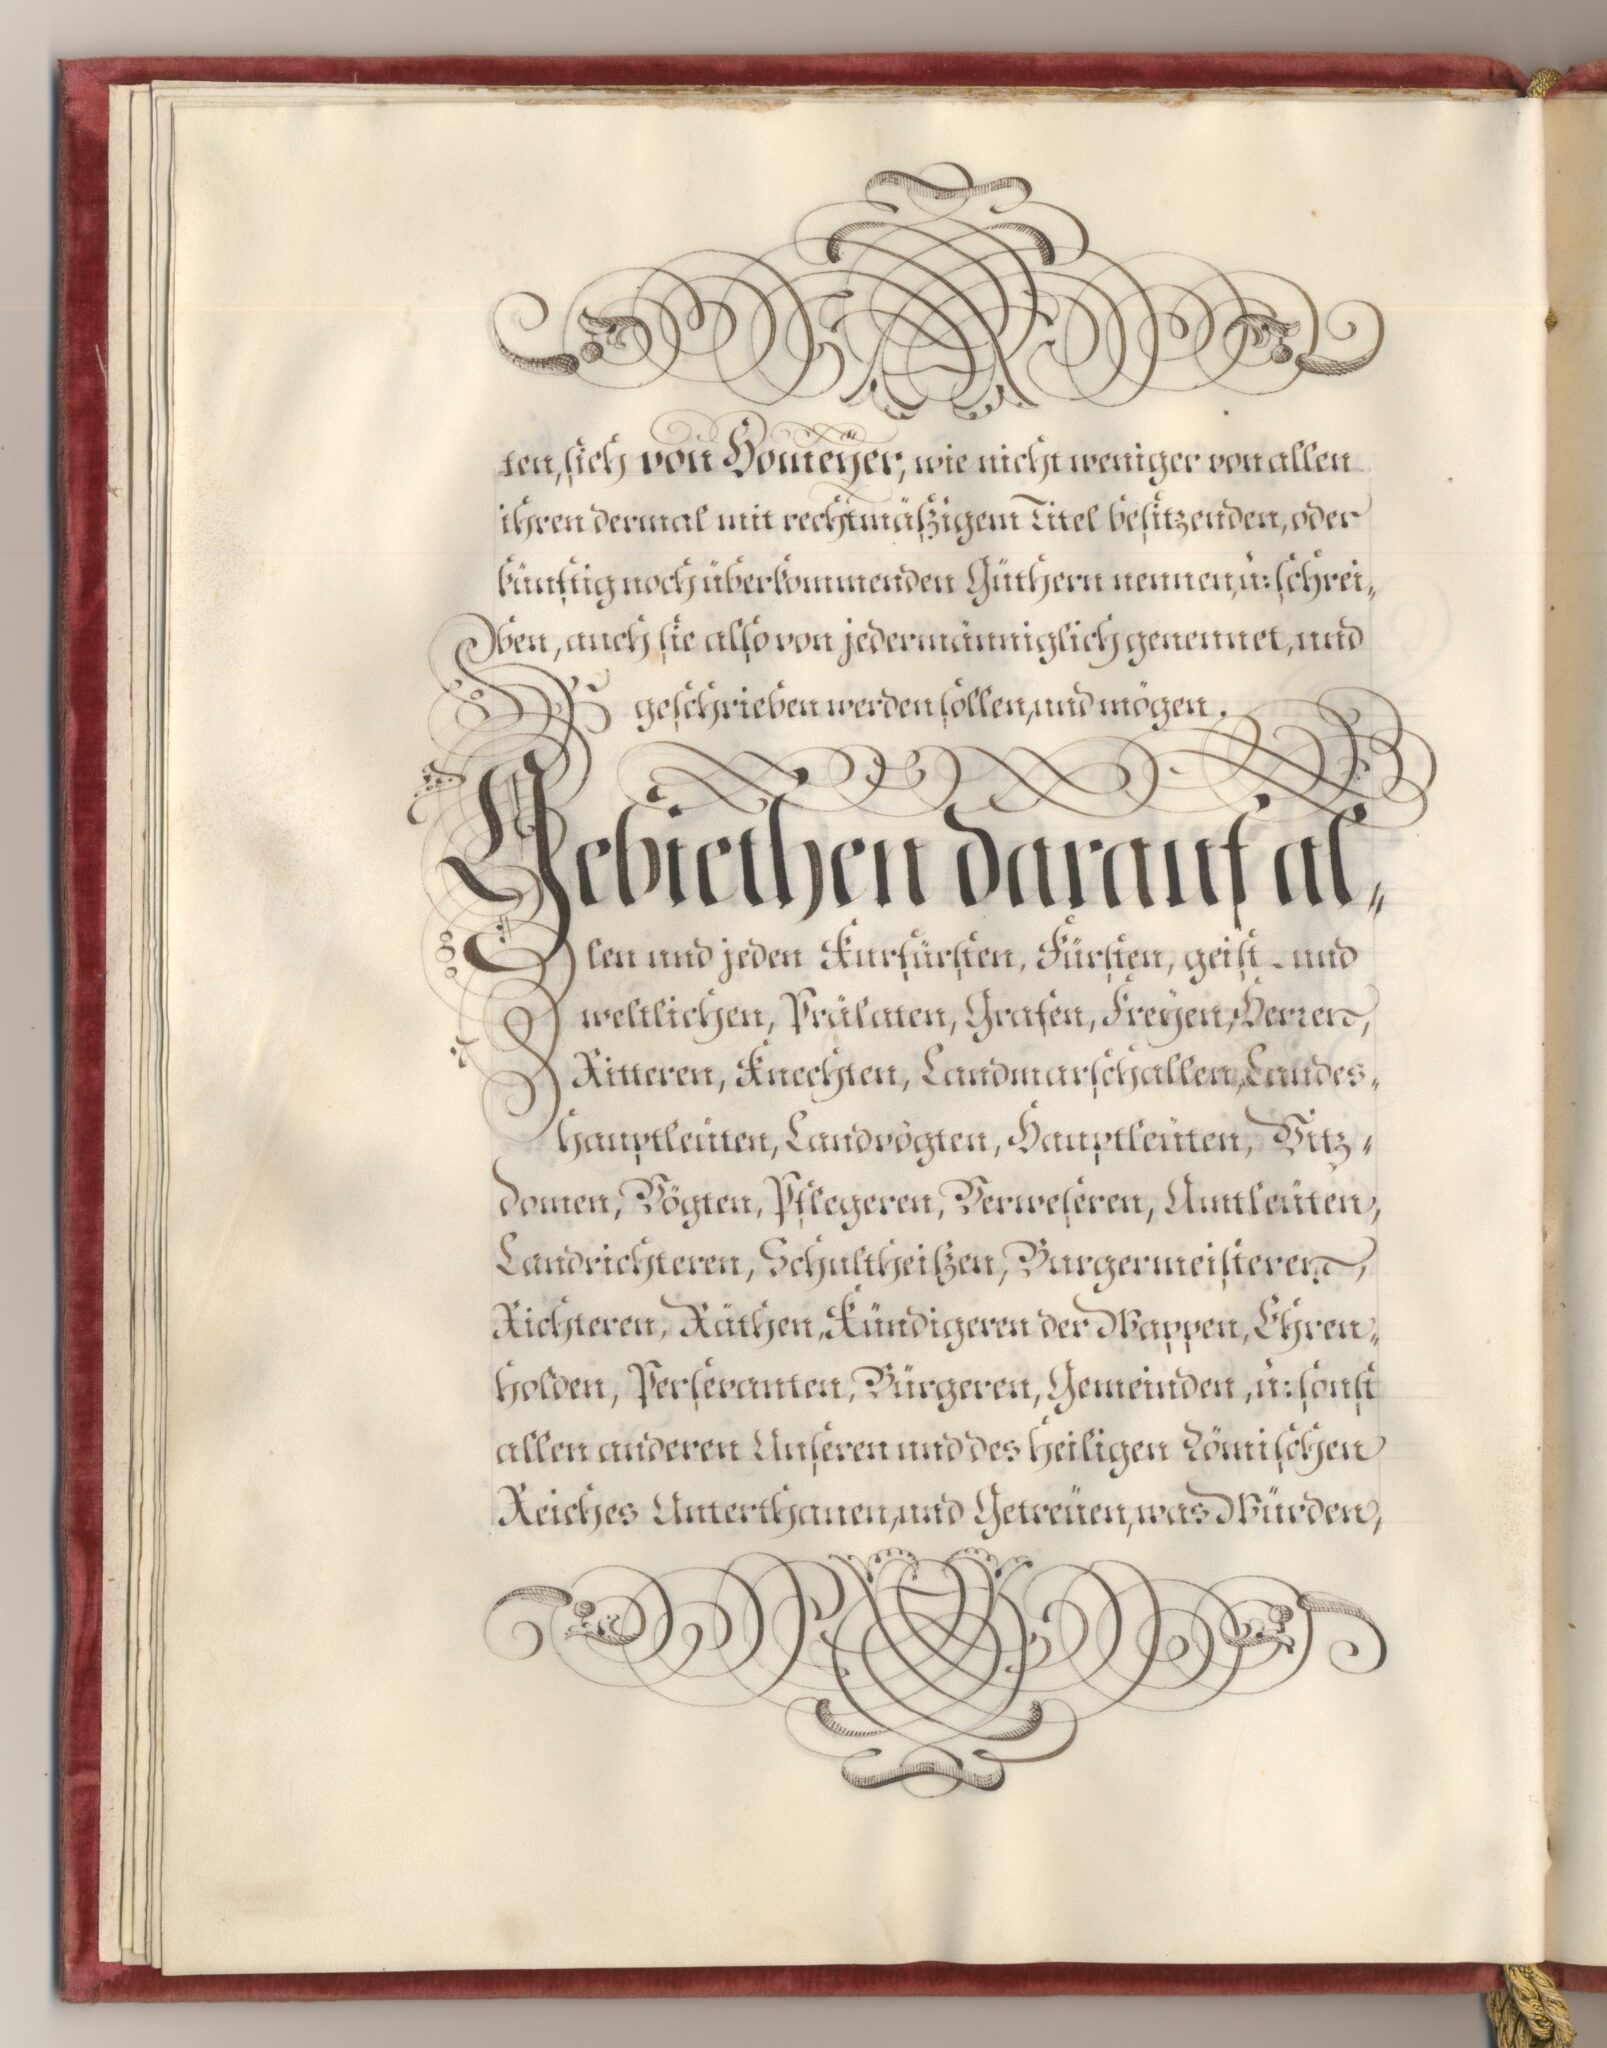 ten, sich von Homeÿer, wie nicht weniger von allen
ihren dermal mit rechtmäßigem Titel besitzenden, oder
künftig noch überkommenden Güthern nennen, u: schrei„
ben, auch sie also von jedermänniglich genennet, und
geschrieben werden sollen, und mögen.
Gebiethen darauf al„
len und jeden Kurfürsten, Fürsten, geist- und
weltlichen, Prälaten, Grafen, Freÿen, Herren,
Ritteren, Knechten, Landmarschallen, Landes„
hauptleüten, Landvögten, Hauptleüten, Vitz„
domen, Vögten, Pflegeren, Verweseren, Amtleüten,
Landrichteren, Schultheißen, Burgermeisteren,
Richteren, Räthen, Kündigeren der Wappen, Ehren„
holden, Persevanten, Bürgeren, Gemeinden, u: sonst
allen anderen Unseren und des heiligen Römischen
Reiches Unterthanen, und Getreüen, was Würden,